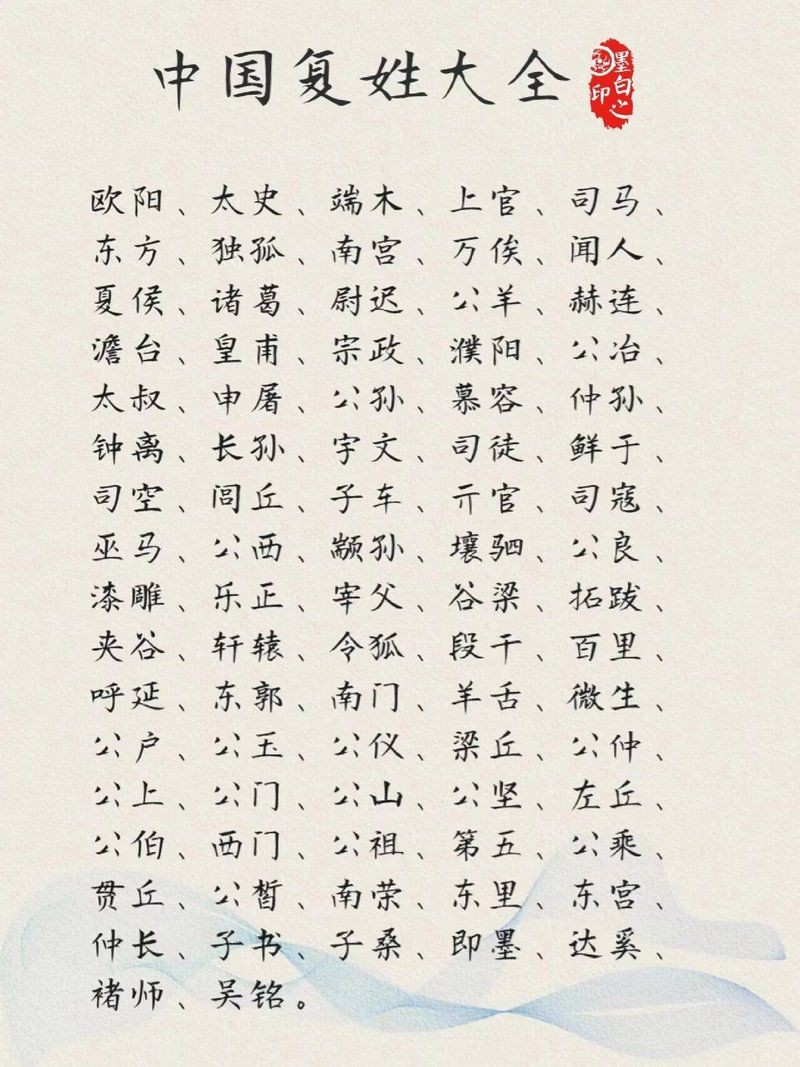 中国复姓大全
墨白之印
欧阳、太史、端木、上官、司马、
东方、独孤、南宫、万俟、闻人、
夏侯、诸葛、尉迟、公羊、赫连、
澹台、皇甫、宗政、濮阳、公冶、
太叔、申屠、公孙、慕容、仲孙、
钟离、长孙、宇文、司徒、鲜于、
司空、闾丘、子车、亓官、司寇、
巫马、公西、颛孙、壤驷、公良、
漆雕、乐正、宰父、谷梁、拓跋、
夹谷、轩辕、令狐、段干、百里、
呼延、东郭、南门、羊舌、微生、
公户、公玉、公仪、梁丘、公仲、
公上、公门、公山、公坚、左丘、
公伯、西门、公祖、第五、公乘、
贯丘、公皙、南荣、东里、东宫、
仲长、子书、子桑、即墨、达奚、
褚师、吴铭。